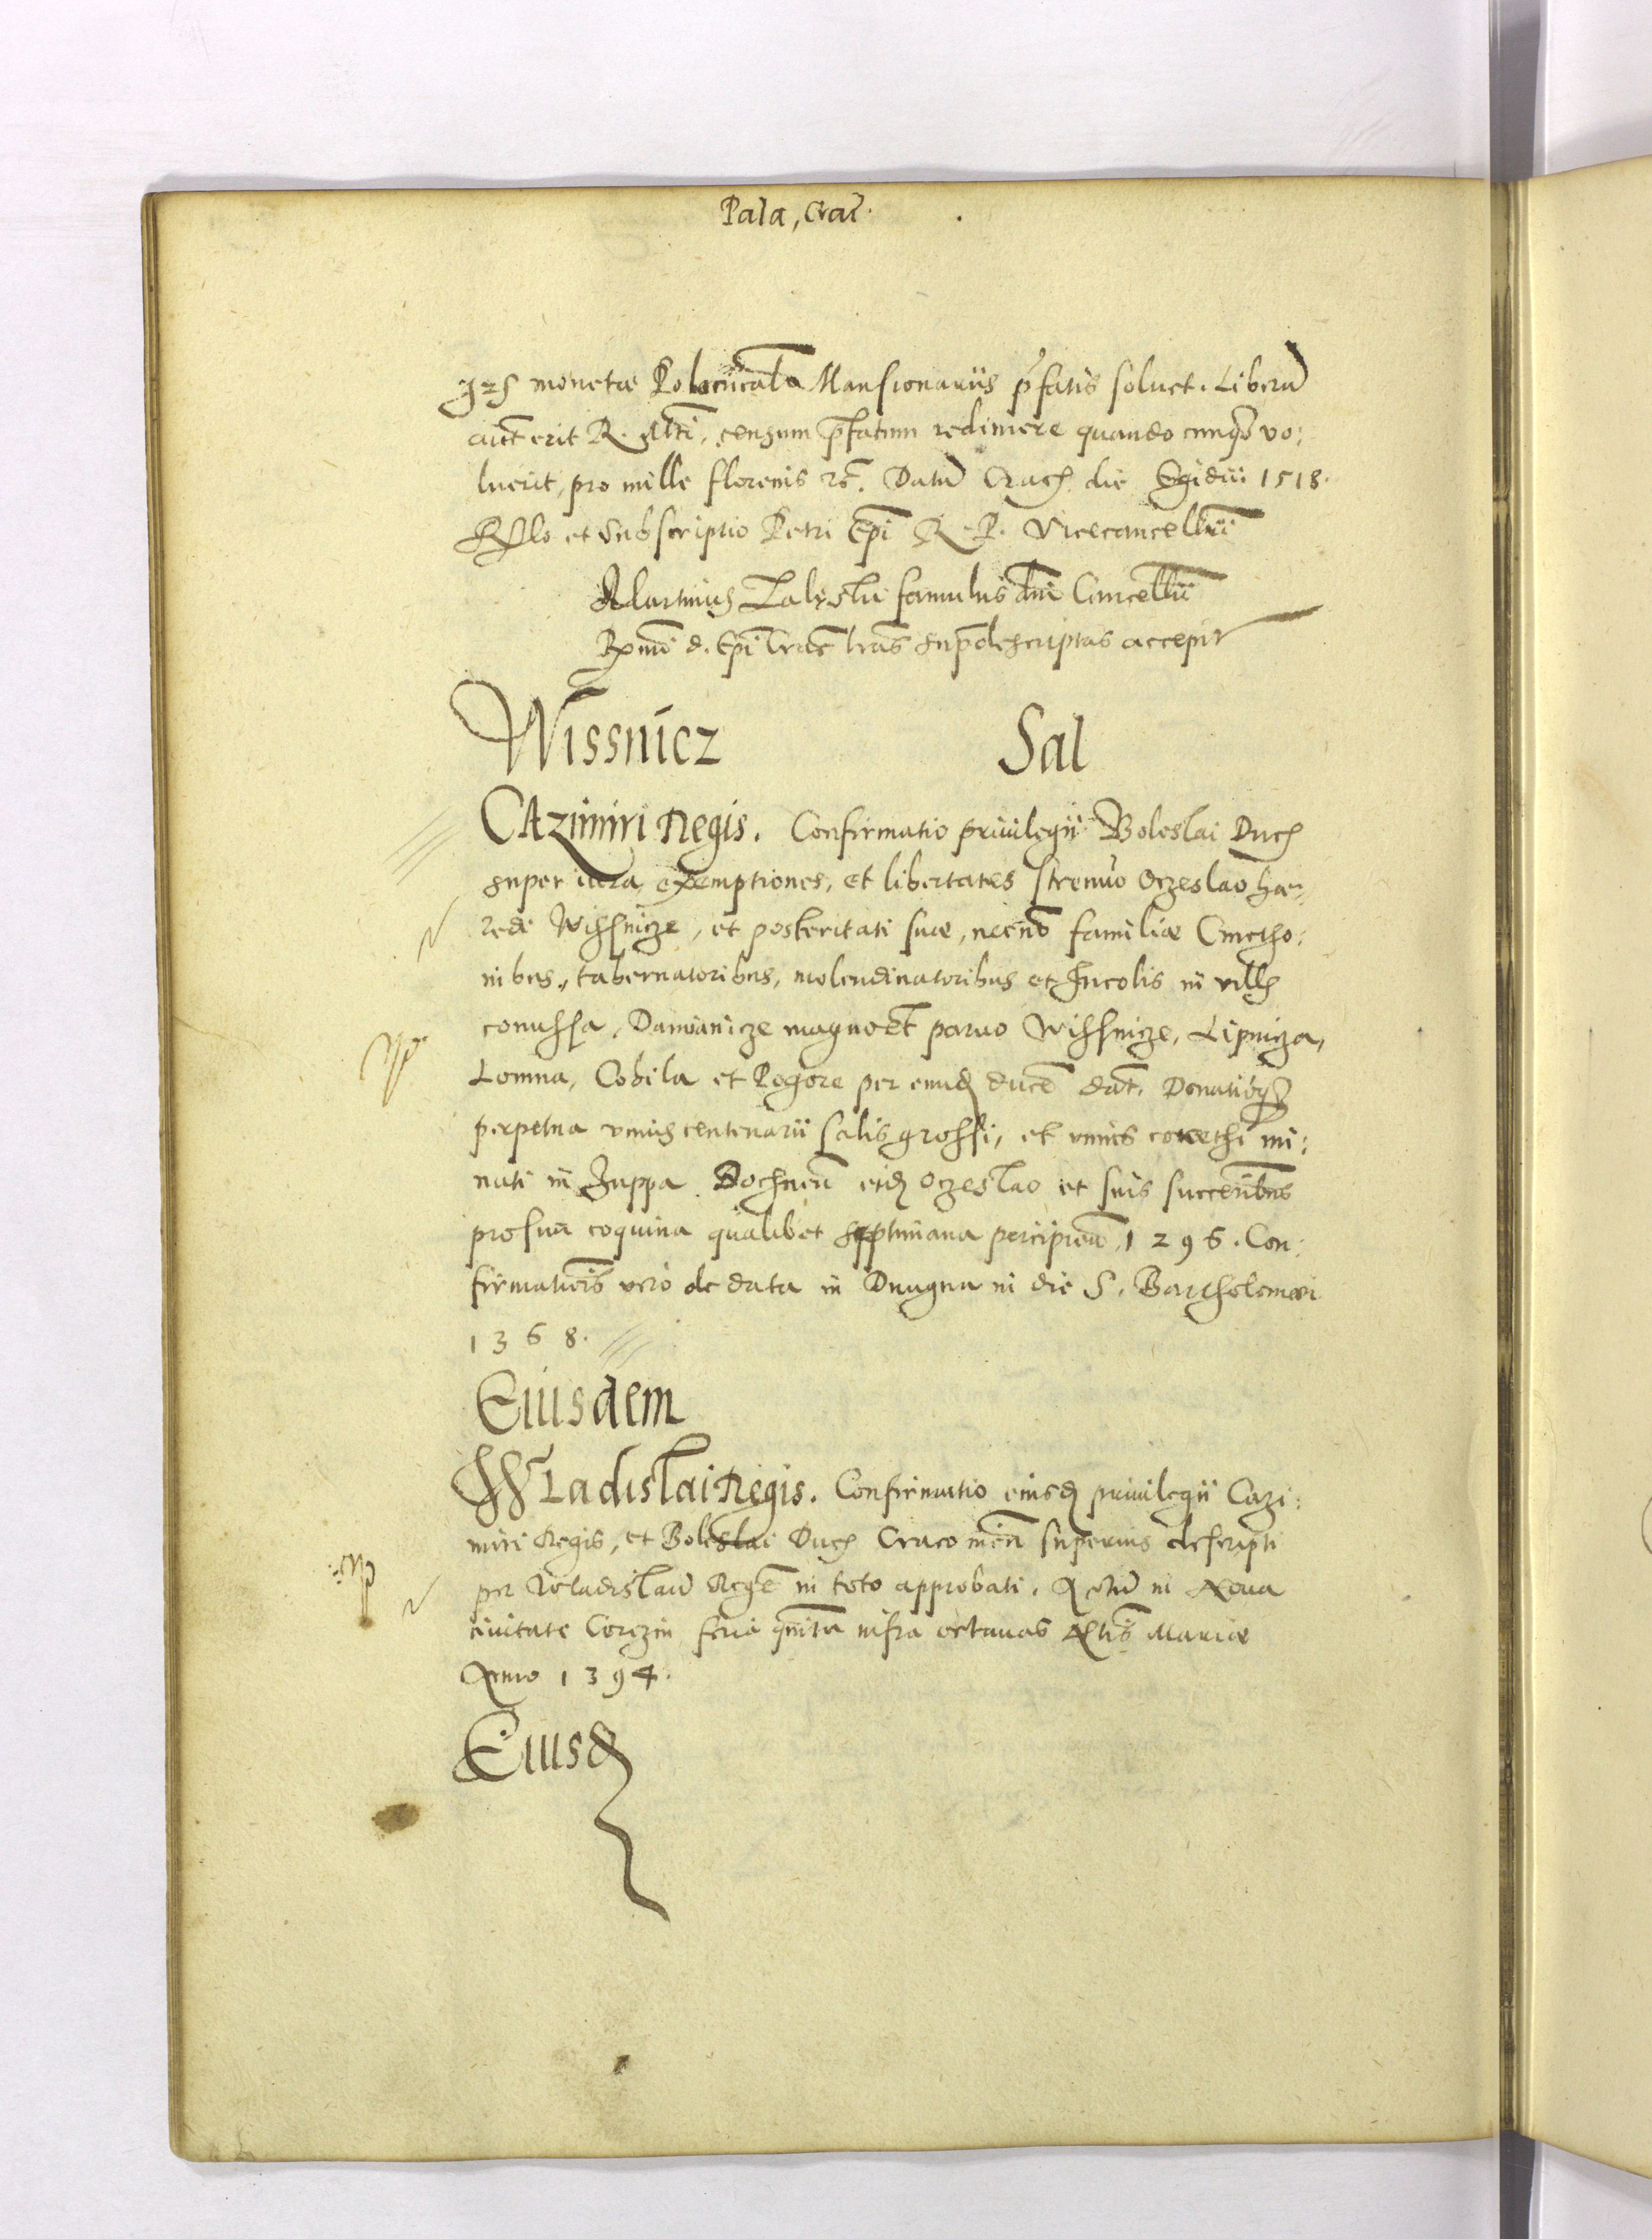 Pala, Crac.
monetæ Mansionariis p̃fatis soluet. Liberũ
aut̃ erit R. Mtti, censum p̃fatum redimere quando cunq₃ vo:
luerit, pro mille florenis Datũ Crac. die Egidii 1518.
et Subscriptio Petri Epi R. P. Vicecancellarii
Martinus famulus dni Cancellarii
d. Epi l̃ras sup̃descriptas accepit
Wissnicz Sal
CAzimiri Regis. Confirmatio priuilegii Boleslai Ducis
super iura, exemptiones, et libertates strenuo Oczeslao hæ:
redi Wissnicze, et posteritati suæ, necnõ familiæ Cmetho:
nibus, tabernatoribus, molendinatoribus et Incolis in villis
conussa, Damianicze magno et paruo Wissnicze, Lipnicza,
Lomna, Cobila et Pogore per eund. ducẽ dat̃. Donatioq₃
perpetua vnius centenarii salis grossi, et vnius mi:
nuti in Zuppa Bochnen̄ eid. Oczeslao et suis succeribus
pro sua coquina qualibet septimana percipien̄ 1296. Con:
firmationis vero de data in in die S. Bartholomæi
1368.
Eiusdem
WLadislai Regis. Confirmatio eiusd. priuilegii Cazi:
miri Regis, et Boleslai Ducis Cracouien̄ superius descripti
per Wladislaũ Regẽ in toto approbati. Actũ in Noua
ciuitate Corczin feria quinta infra octauas Mariæ
Anno 1394.
Eiusd.